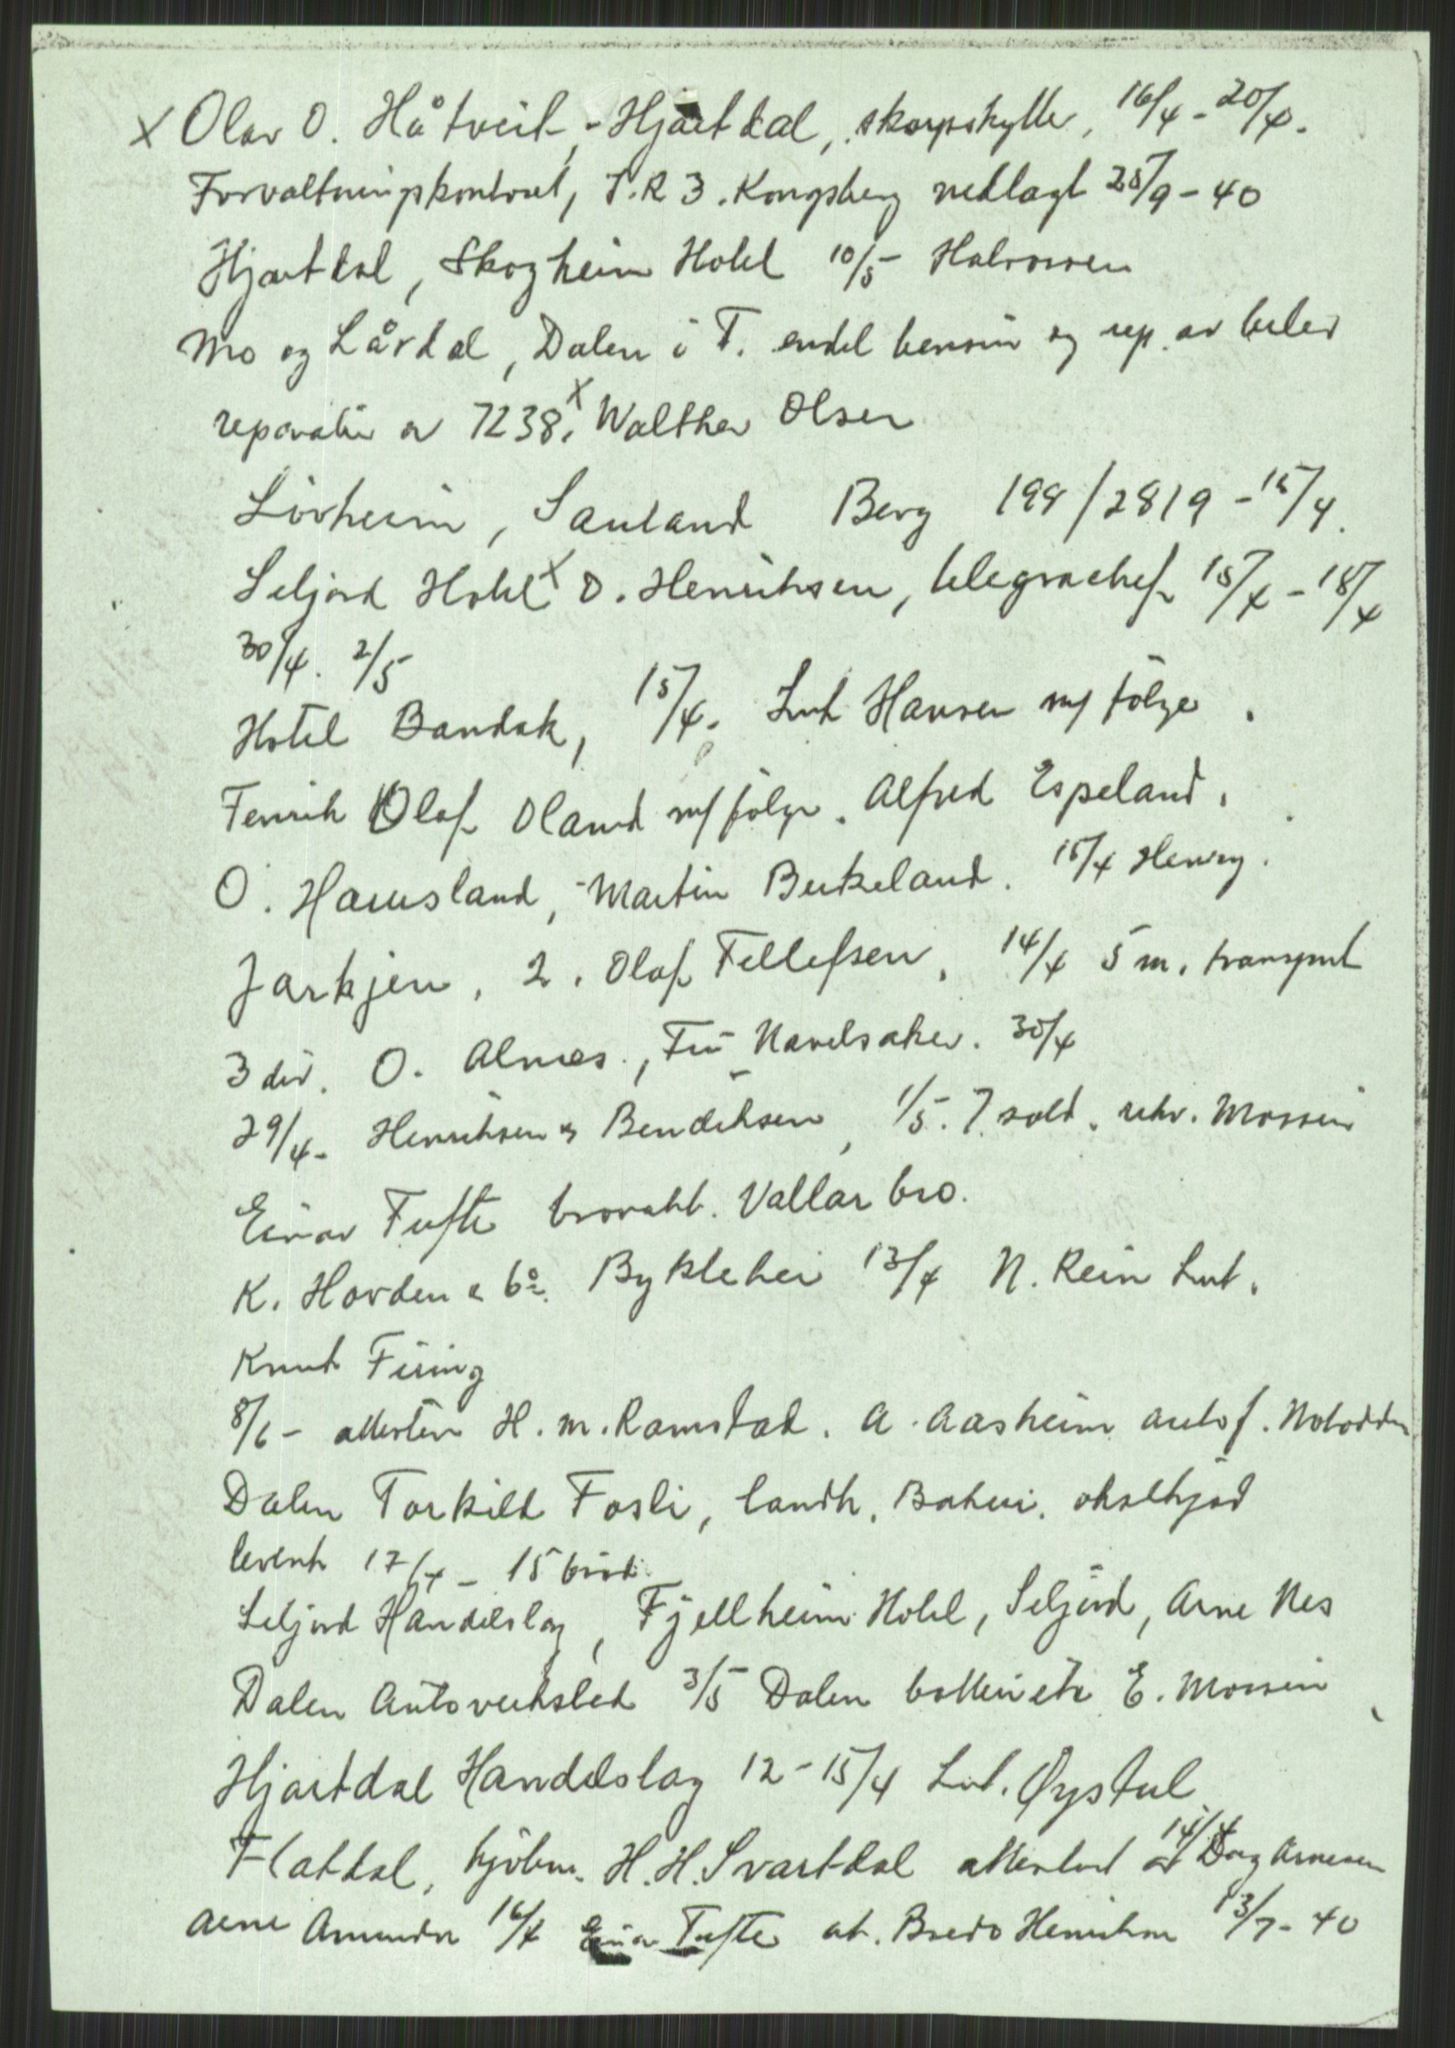 x Olav O. Håtveit, - Hjartdal, skarpskytter, 16/4 - 20/4.
Forvaltningskontoret, I.R 3. Kongsberg nedlagt 25/9 - 40
Hjartdal, Skogheim Hotel 10/5 - Halvorsen
Mo og Lårdal, Dalen i T. endel bensin og rep. av biler
reparatur av 7238, x Walther Olsen
Livheim, Sauland Berg 199/2819 - 15/4.
Seljord Hotel x O. Henriksen, telegrafchef 15/4 - 18/4
30/4. 2/5
Hotel Bandak, 15/4. Lnt Hansen m/ følge.
Fenrik Olaf Oland m/ følge. Alfred Espeland.
O. Hamsland, - Martin Birkeland. 15/4 Henry.
Jarkjen, 2. Olaf Tellefsen. 14/4 5 m. transport
3 div. O. Almes., Fru Navelsaker. 30/4
29/4 - Henriksen & Bendiksen, 1/5. 7 sold. rekv. Mossin
Einar Tufte brovakt. Vallar bro.
K. Hovden & Co. Byklehei 13/4 N. Rein Lnt.
Knut Firing
8/6 - attesten H. M. Ramstad. A. Aasheim autof. Notodden
Dalen Torkild Fosli, landh. Bakeri. oksekjød
levert 17/4 - 15 brød.
Seljord Handelslag, Fjellheim Hotel, Seljord, Arne Nes
Dalen Autoverksted 3/5 Dalen batteri etc E. Mossin
Hjartdal Handelslag 12 - 15/4 Lnt. Øystul
Flatdal, kjøbm. H. H. Svartdal attestert av 14/4 Dag Arnesen
Arne Amundsen 16/4 Einar Tufte at. Bredo Henriksen 13/7 - 40